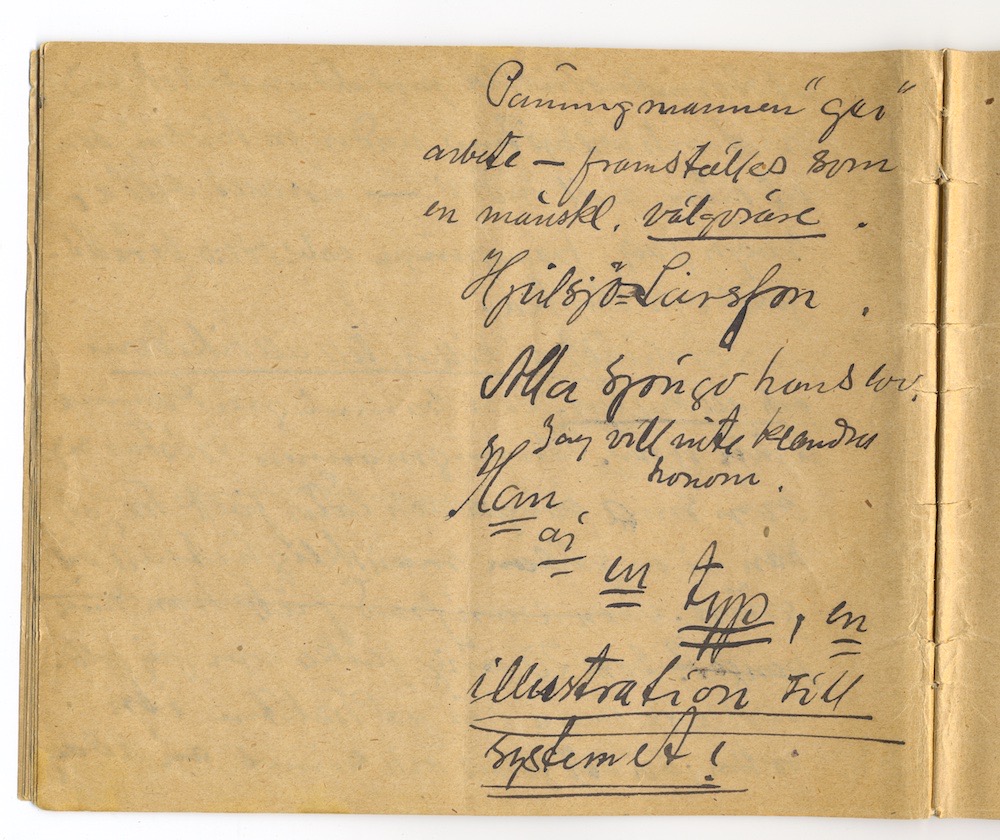 Päningmannen "ger"
arbete – framställes som
en mänskl. välgörare.
Hjulsjö-Larsson.
Alla sjöngo hans lov.
Jag vill inte klandra
honom.
Han
är
en typ, en
illustration till
systemet!